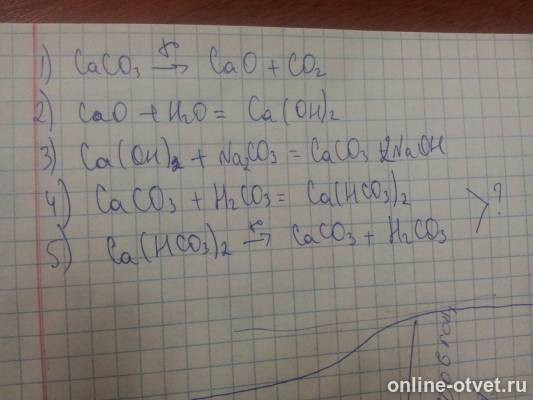 1) CaCO₃ →(t°) CaO + CO₂
2) CaO + H₂O = Ca(OH)₂
3) Ca(OH)₂ + Na₂CO₃ = CaCO₃ + 2NaOH
4) CaCO₃ + H₂CO₃ = Ca(HCO₃)₂
?
5) Ca(HCO₃)₂ →(t°) CaCO₃ + H₂CO₃
online-otvet.ru